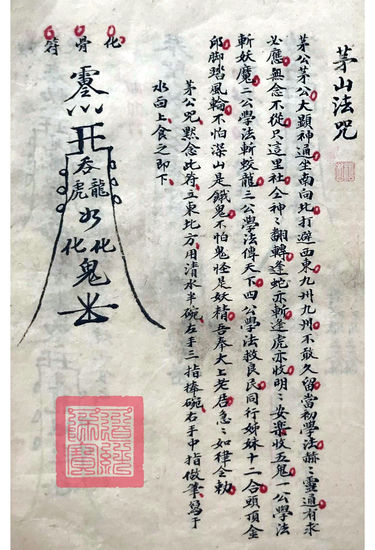 茅山法咒
茅公茅公大顯神通坐南向北打避西東九州九州不敢久留當初學法赫〻靈通有求
必應無念不從只這里社金神〻翻轉逢蛇亦斬逢虎亦收明〻安樂收五鬼一公學法
斬妖魔二公學法斬蛟龍三公學法傳天下四公學法救良民同行姊妹十二合頭頂金
邱脚踏風輪不怕深山是餓鬼不怕鬼怪是妖精吾奉太上老君急〻如律令勅
茅公咒黙念此符立東北方用清水半碗左手三指捧碗右手中指做筆寫于
水面上食之即下
化骨符
吞
龍虎
水
化化
鬼